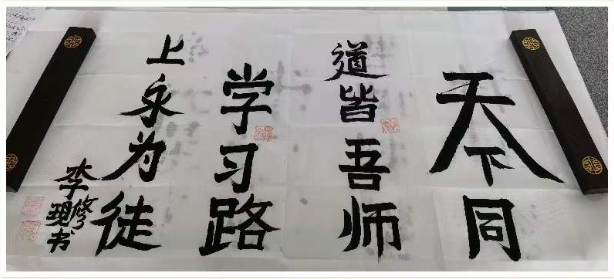 天下同
道皆吾师
学习路
上永为徒
李修现书